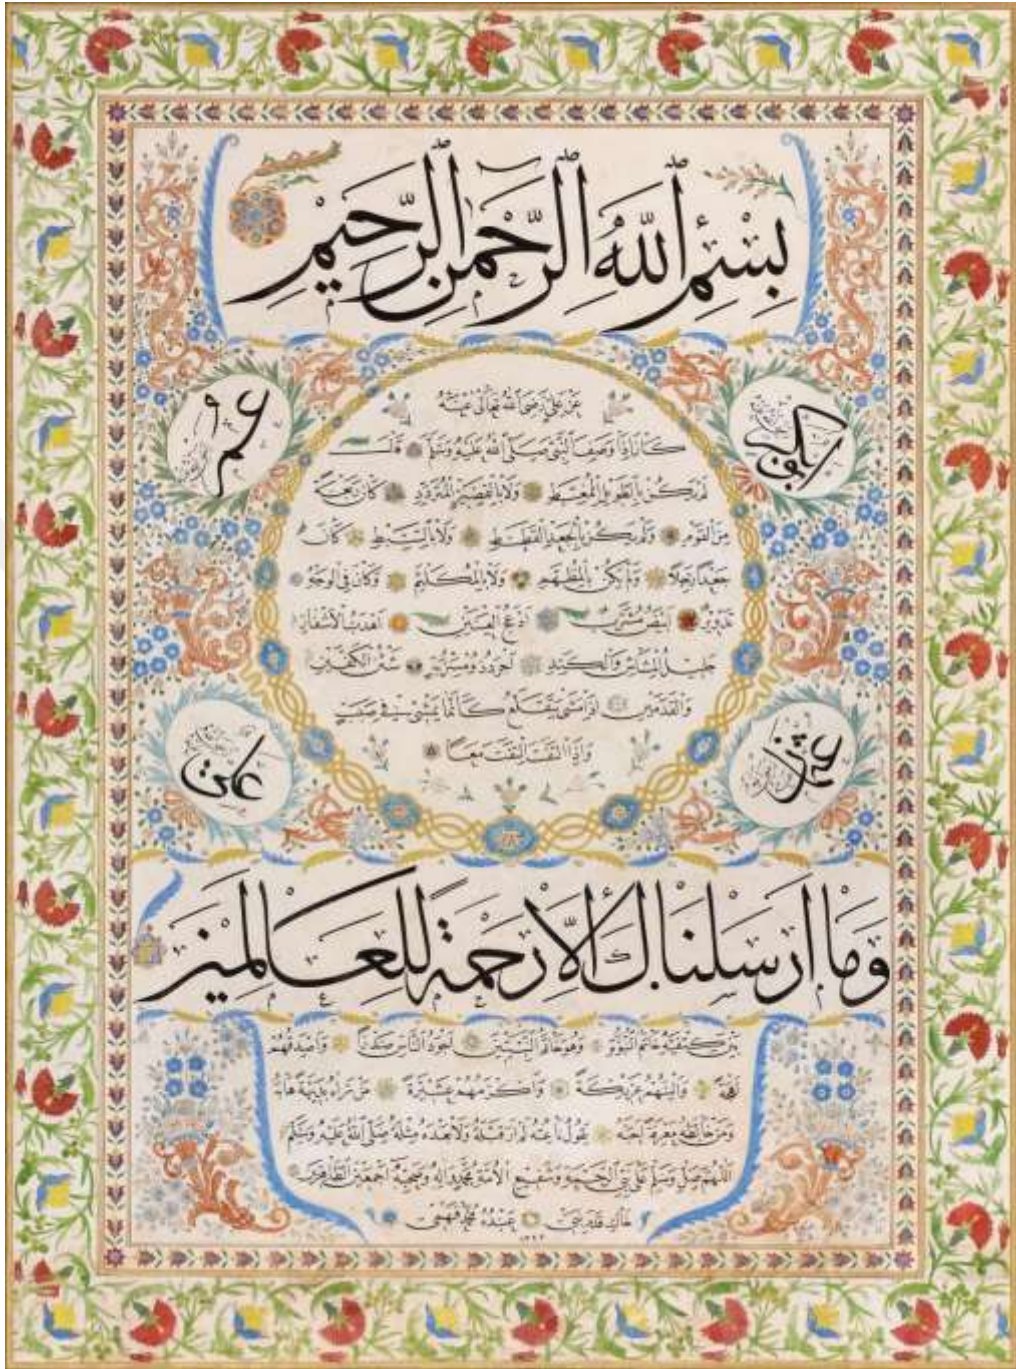 بِسْمِ اللّٰهِ الرَّحْمٰنِ الرَّحِيمِ
ابوبكر
عمر
عَنْ عَلِيٍّ رَضِيَ اللّٰهُ تَعَالَى عَنْهُ
كَانَ اِذَا وَصَفَ النَّبِيَّ صَلَّى اللّٰهُ عَلَيْهِ وَسَلَّمَ قَالَ
لَمْ يَكُنْ بِالطَّوِيلِ الْمُمَّغِطِ وَلَا بِالْقَصِيرِ الْمُتَرَدِّدِ كَانَ رَبْعَةً
مِنَ الْقَوْمِ وَلَمْ يَكُنْ بِالْجَعْدِ الْقَطَطِ وَلَا بِالسَّبِطِ كَانَ
جَعْدًا رَجِلًا وَلَمْ يَكُنْ بِالْمُطَهَّمِ وَلَا بِالْمُكَلْثَمِ وَكَانَ فِي الْوَجْهِ
تَدْوِيرٌ اَبْيَضُ مُشْرَبٌ اَدْعَجُ الْعَيْنَيْنِ اَهْدَبُ الْاَشْفَارِ
جَلِيلُ الْمُشَاشِ وَالْكَتَدِ اَجْرَدُ ذُو مَسْرُبَةٍ شَثْنُ الْكَفَّيْنِ
وَالْقَدَمَيْنِ اِذَا مَشَى يَتَقَلَّعُ كَاَنَّمَا يَمْشِي فِي صَبَبٍ
وَاِذَا الْتَفَتَ الْتَفَتَ مَعًا
عثمان
علي
وَمَا اَرْسَلْنَاكَ اِلَّا رَحْمَةً لِلْعَالَمِينَ
بَيْنَ كَتِفَيْهِ خَاتَمُ النُّبُوَّةِ وَهُوَ خَاتَمُ النَّبِيِّينَ اَجْوَدُ النَّاسِ صَدْرًا وَاَصْدَقُهُمْ
لَهْجَةً وَاَلْيَنُهُمْ عَرِيكَةً وَاَكْرَمُهُمْ عِشْرَةً مَنْ رَاٰهُ بَدِيهَةً هَابَهُ
وَمَنْ خَالَطَهُ مَعْرِفَةً اَحَبَّهُ يَقُولُ نَاعِتُهُ لَمْ اَرَ قَبْلَهُ وَلَا بَعْدَهُ مِثْلَهُ صَلَّى اللّٰهُ عَلَيْهِ وَسَلَّمَ
اَللّٰهُمَّ صَلِّ وَسَلِّمْ عَلَى نَبِيِّ الرَّحْمَةِ وَشَفِيعِ الْاُمَّةِ مُحَمَّدٍ وَاٰلِهِ وَصَحْبِهِ اَجْمَعِينَ الطَّاهِرِينَ
عَبْدُهُ مُحَمَّد فَهْمِي